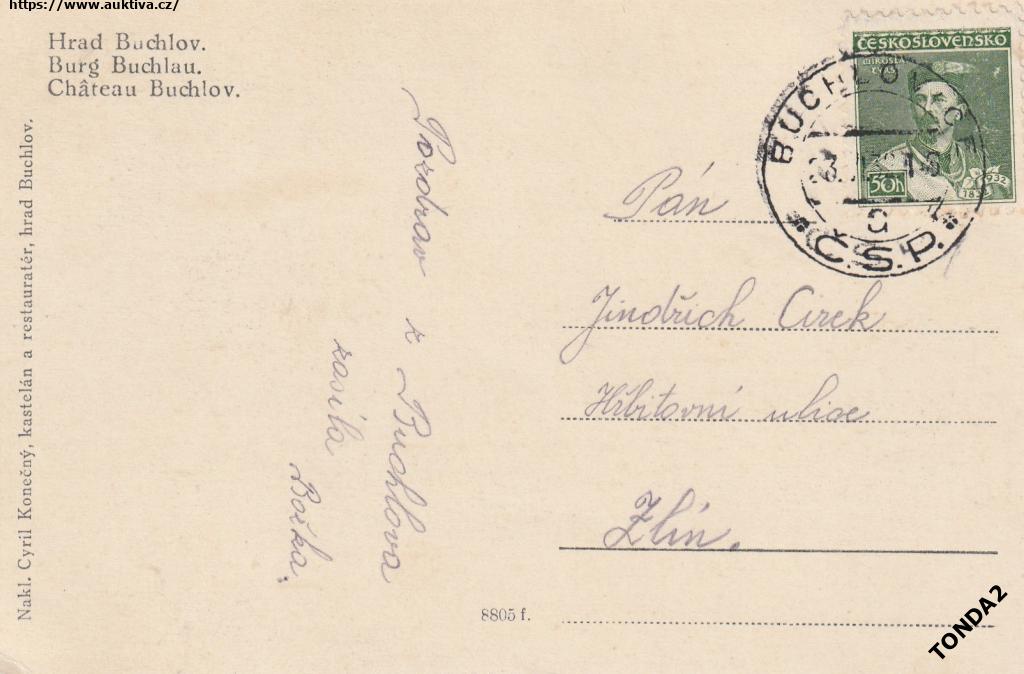 https://www.auktiva.cz/
Hrad Buchlov.
Burg Buchlau.
Château Buchlov.
Nakl. Cyril Konečný, kastelán a restauratér, hrad Buchlov.
Pozdrav z Buchlova
zasílá
Božka.
ČESKOSLOVENSKO
50h
1832
1932
BUCHLOVICE
Č.S.P.
Pán
Jindřich Cirek
Hřbitovní ulice
Zlín.
8805 f.
TONDA2